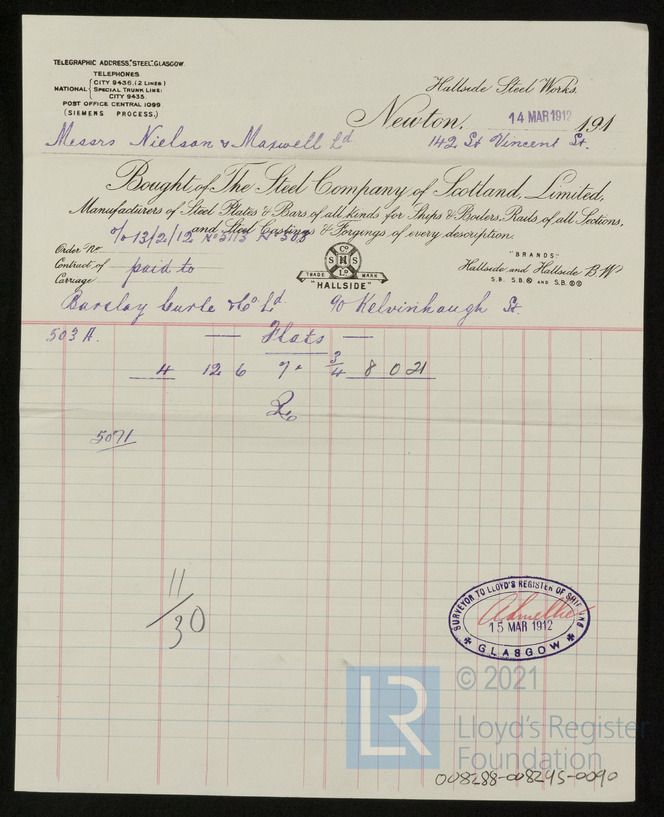 TELEGRAPHIC ADDRESS, "STEEL", GLASGOW.
TELEPHONES
NATIONAL { CITY 9436. (2 LINES)
SPECIAL TRUNK LINE:
CITY 9435.
POST OFFICE CENTRAL 1099
(SIEMENS PROCESS.)
Hallside Steel Works.
Newton, 14 MAR 1912 191
Messrs Nielson & Maxwell Ld 142 St Vincent St.
Bought of The Steel Company of Scotland, Limited,
Manufacturers of Steel Plates & Bars of all kinds for Ships & Boilers, Rails of all Sections,
and Steel Castings & Forgings of every description.
Order No. 13/2/12 No 503
Contract of
Carriage paid to
C S S Co Ld
TRADE MARK
"HALLSIDE"
"BRANDS"
Hallside and Hallside B.W.
S.B. S.B.® AND S.B.®®
Barclay Curle & Co Ld. 90 Kelvinhaugh St.
503 A. — Flats —
4 12 6 7" 3/4 8 0 21
5071
11/30
SURVEYOR TO LLOYD'S REGISTER OF SHIPPING
15 MAR 1912
GLASGOW
LR © 2021
Lloyd's Register
Foundation
008288-008295-0090